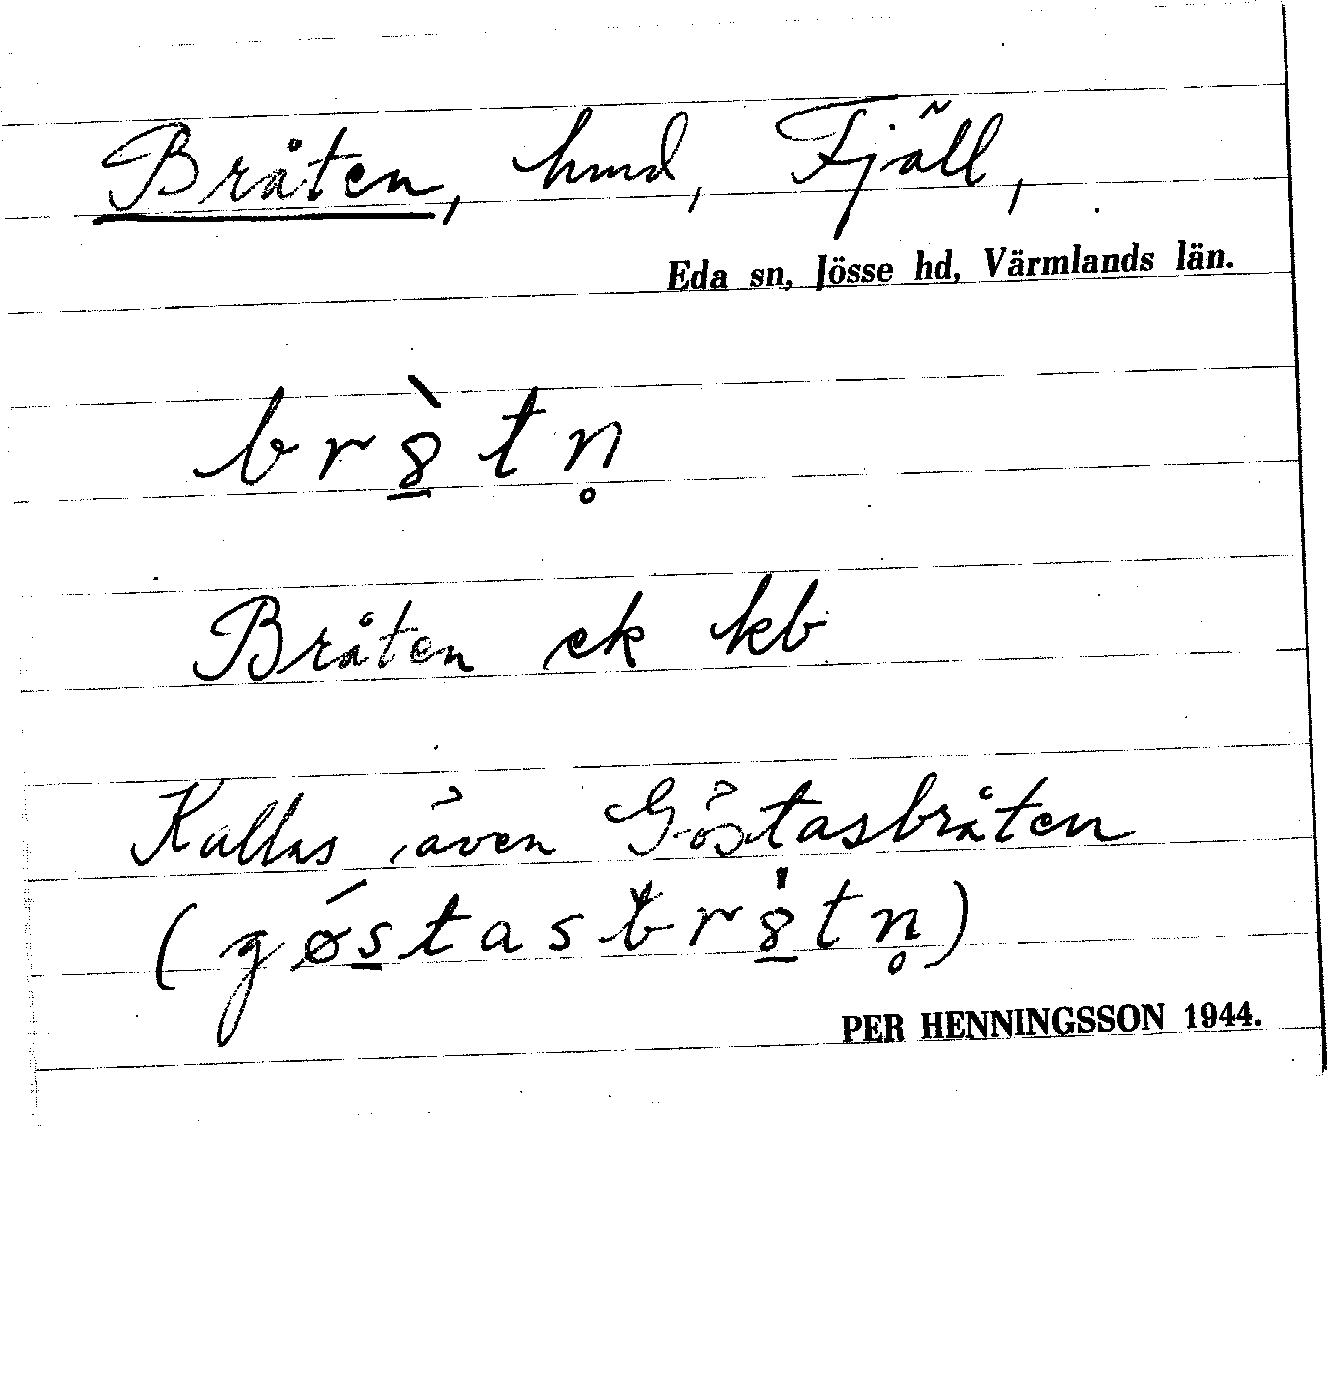 Bråten, hmd, Fjäll,
Eda sn, Jösse hd, Värmlands län.
br8̲̀tn̥
Bråten ek kb
Kallas även Göstasbråten
(gǿs̲tasbr8̲̍tn̥)
PER HENNINGSSON 1944.